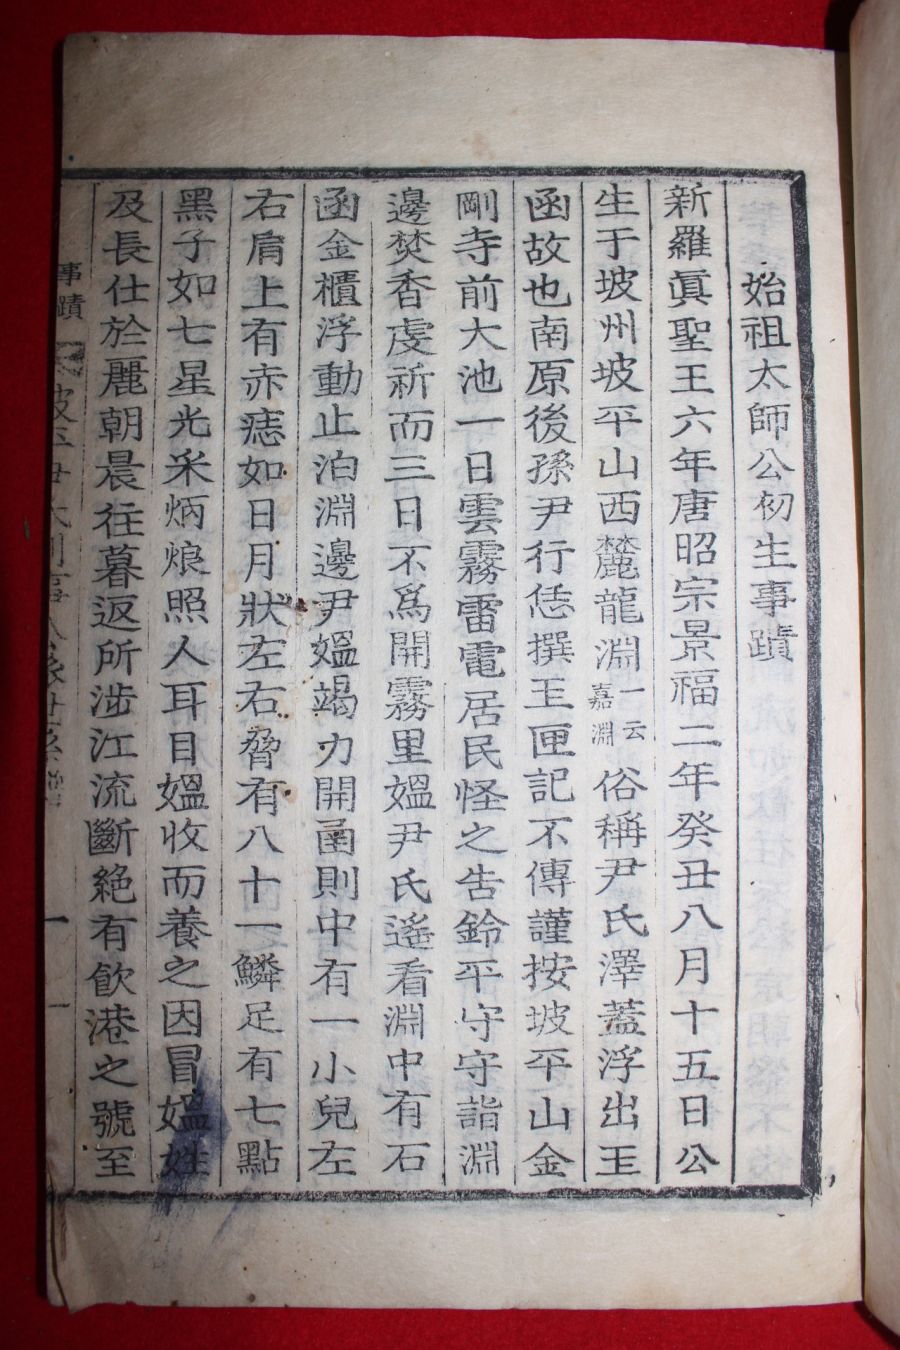 始祖太師公初生事蹟
新羅眞聖王六年唐昭宗景福二年癸丑八月十五日公
生于坡州坡平山西麓龍淵一云嘉淵俗稱尹氏澤蓋浮出玉
函故也南原後孫尹行恁撰玉匣記不傳謹按坡平山金
剛寺前大池一日雲霧雷電居民怪之告鈴平守守詣淵
邊焚香虔祈而三日不爲開霧里媼尹氏遙看淵中有石
函金櫃浮動止泊淵邊尹媼竭力開函則中有一小兒左
右肩上有赤痣如日月狀左右脅有八十一鱗足有七點
黑子如七星光采炳烺照人耳目媼收而養之因冒媼姓
及長仕於麗朝晨往暮返所涉江流斷絶有飮港之號至
事蹟